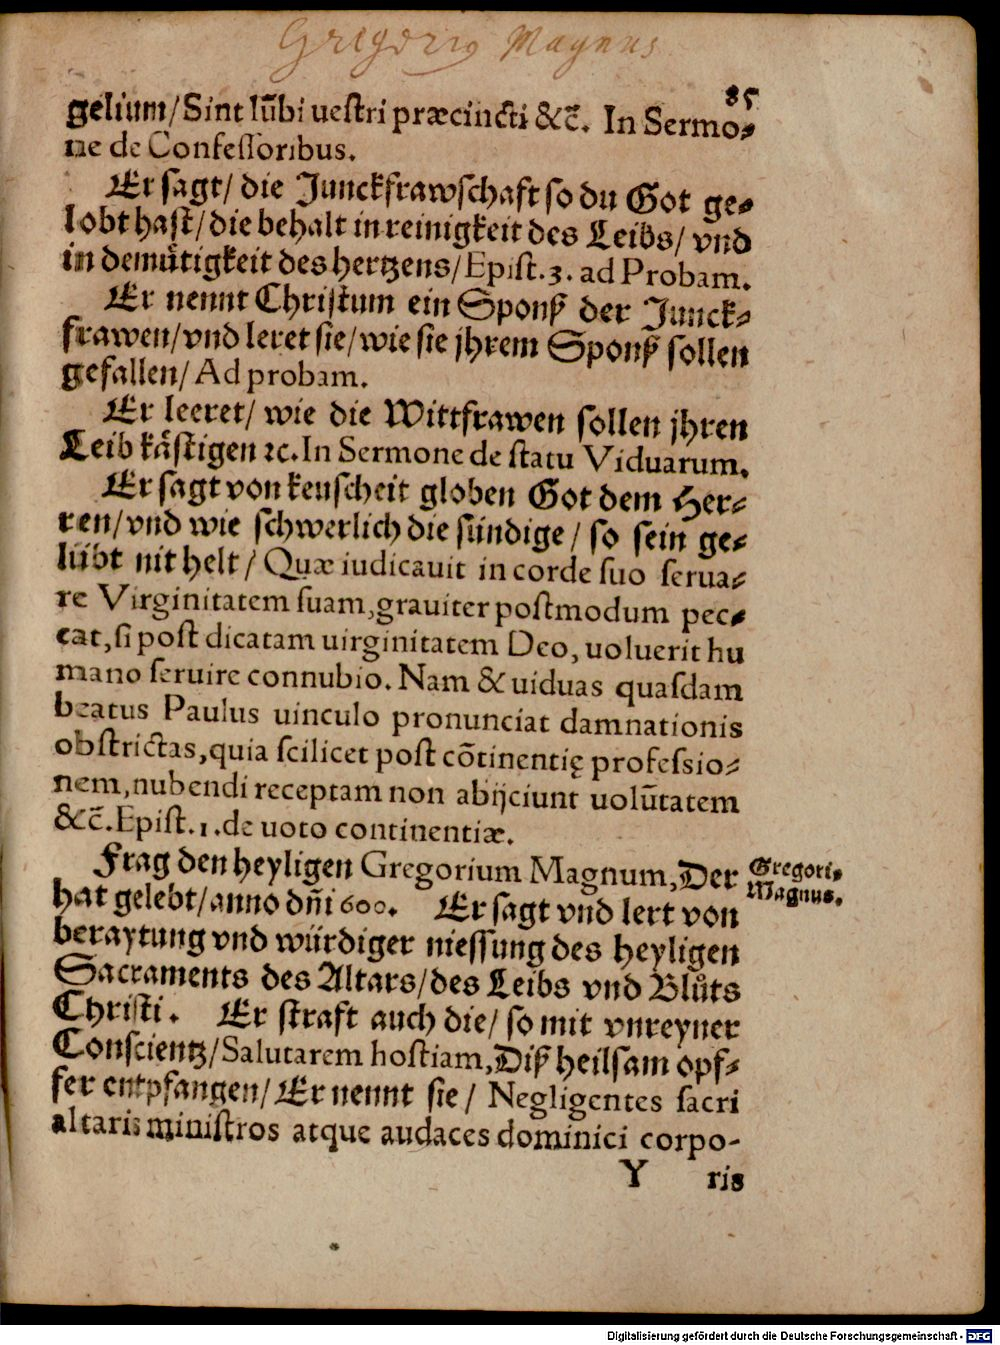 Gregorius Magnus
85
gelium/Sint lũbi uestri præcincti &c̃. In Sermo⸗
ne de Confessoribus.
Er sagt/ die Junckfrawschaft so du Got ge⸗
lobt hast/die behalt in reinigkeit des Leibs/ vnd
in demuͤtigkeit des hertzens/Epist.3. ad Probam.
Er nennt Christum ein Sponß der Junck⸗
frawen/vnd leret sie/wie sie jhrem Sponß sollen
gefallen/ Ad probam.
Er leeret/ wie die Wittfrawen sollen jhren
Leib kaͤstigen ꝛc.In Sermone de statu Viduarum.
Er sagt von keuscheit globen Got dem Her⸗
ren/vnd wie schwerlich die sündige/ so sein ge⸗
lübt nit helt/ Quæ iudicauit in corde suo serua⸗
re Virginitatem suam,grauiter postmodum pec⸗
cat,si post dicatam uirginitatem Deo, uoluerit hu
mano seruire connubio. Nam & uiduas quasdam
beatus Paulus uinculo pronunciat damnationis
obstrictas,quia scilicet post cõtinentię professio⸗
nem,nubendi receptam non abijciunt uolũtatem
&c̃.Epist.1.de uoto continentiæ.
Frag den heyligen Gregorium Magnum,Der
Gregori⸗
Magnus.
hat gelebt/anno dñi 600. Er sagt vnd lert von
beraytung vnd würdiger niessung des heyligen
Sacraments des Altars/des Leibs vnd Bluͦts
Christi. Er straft auch die/ so mit vnreyner
Conscientz/Salutarem hostiam,Diß heilsam opf⸗
fer entpfangen/ Er nennt sie/ Negligentes sacri
altaris ministros atque audaces dominici corpo-
Y ris
Digitalisierung gefördert durch die Deutsche Forschungsgemeinschaft - DFG